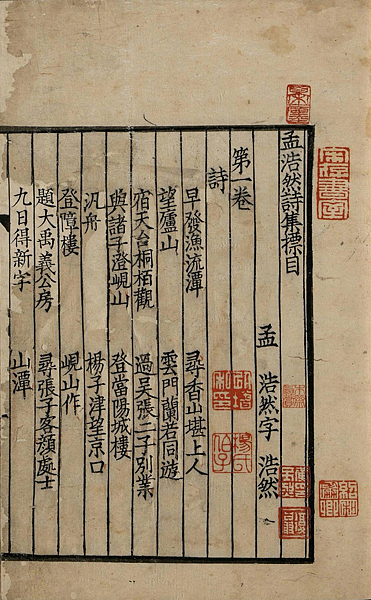 孟浩然詩集標目
孟 浩然字 浩然
第一卷
詩
早發漁浦潭 尋香山堪上人
望廬山 雲門蘭若同遊
宿天台桐栢觀 過吴張二子別業
與諸子登峴山 登當陽城樓
汎舟 楊子津望京口
登障樓 峴山作
題大禹義公房 尋張子容顔處士
九日得新字 山潭